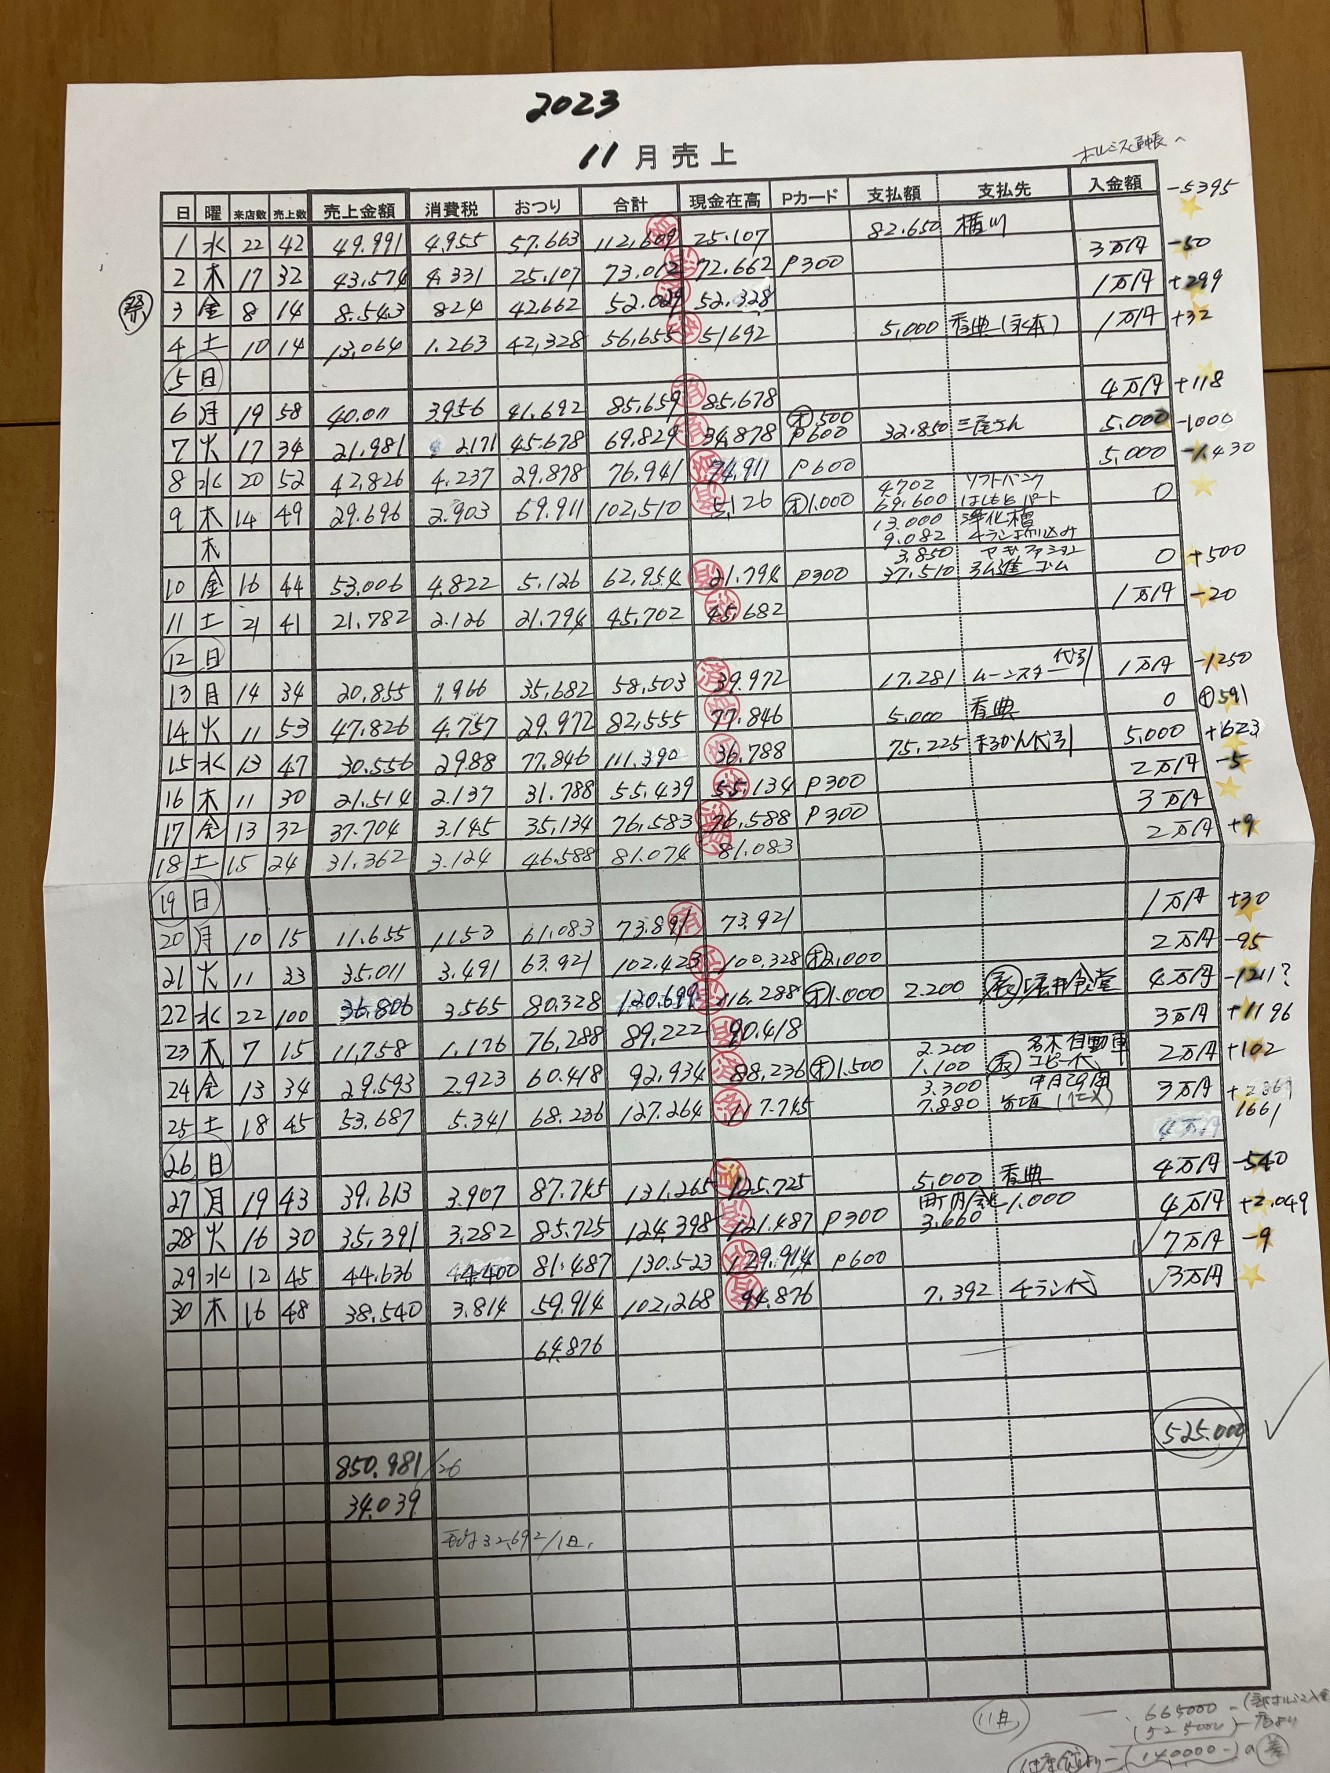 2023
11月売上
日 曜 来店数 売上数 売上金額 消費税 おつり 合計 現金在高 Pカード 支払額 支払先 入金額 -5395
1 水 22 42 49.991 4.955 57.663 112,609 25.107 82.650 楯川
2 木 17 32 43.574 4.331 25.107 73.012 72.662 P300 3万円 -50
祭 3 金 8 14 8.543 824 42.662 52.029 52.328 1万円 +299
4 土 10 14 13,064 1.263 42,328 56,655 51692 5,000 香典 1万円 +32
5 日
6 月 19 58 40.011 3956 41.692 85,659 85.678 4万円 +118
7 火 17 34 21.981 2171 45.678 69.829 34,878 P600 32.850 三尾さん 5.000 -1000
8 水 20 52 42,826 4.237 29.878 76.941 74,911 P600 5,000 -1430
9 木 14 49 29.696 2.903 69.911 102,510 5,126 1.000 4702 ソフトバンク 0
69.600
木 13.000 浄化槽
9.082 チラシ折り込み
3,850
10 金 16 44 53,006 4.822 5.126 62,954 21.794 P300 37,510 弘進ゴム 0 +500
11 土 21 41 21.782 2.126 21.794 45,702 45,682 1万円 -20
12 日
13 月 14 34 20.855 1,966 35,682 58,503 39.972 17.281 ムーンスター代引 1万円 -1250
14 火 11 53 47.826 4.757 29.972 82,555 77.846 5.000 香典 0 591
15 水 13 47 30.556 2988 77.846 111.390 36.788 75,225 まるかん代引 5,000 +623
16 木 11 30 21.514 2.137 31.788 55,439 55,134 P300 2万円 -5
17 金 13 32 37.704 3.145 35,134 76,583 76,588 P300 3万円
18 土 15 24 31.362 3.124 46.588 81.074 81.083 2万円 +9
19 日
20 月 10 15 11.655 1153 61,083 73.891 73.921 1万円 +30
21 火 11 33 35.011 3.491 63.921 102.423 100.328 2.000 2万円 -95
22 水 22 100 36,806 3.565 80.328 120.699 116.288 1.000 2.200 4万円 -1211?
23 木 7 15 11,758 1.176 76,288 89,222 90.418 3万円 +1196
24 金 13 34 29.593 2.923 60.418 92,934 88,236 1.500 2.200 自動車 2万円 +102
1.100 コピー代
25 土 18 45 53.687 5.341 68.236 127.264 117.745 3.300 3万円
7.880 1661
26 日 4万円
27 月 19 43 39.613 3.907 87.745 131,265 125.725 5,000 香典 4万円 -540
28 火 16 30 35,391 3,282 85.725 124,398 121.487 P300 町内会 1.000 4万円 +2,049
3,660
29 水 12 45 44.636 4400 81.487 130.523 129.914 P600 7万円 -9
30 木 16 48 38,540 3.814 59.914 102,268 94.876 7,392 チラシ代 3万円
64.876
525.000
850.981/26
34.039
平均32,692/1日
665000